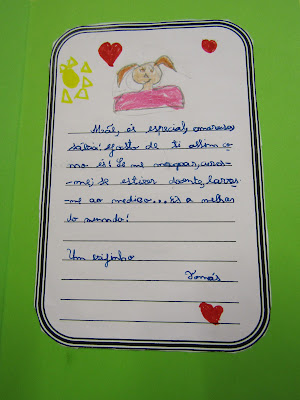 Mãe, és especial, amorosa,
sábia! Gosto de ti assim co-
mo és! Se me magoar, curas-
-me; Se estiver doente, levas-
-me ao médico... És a melhor
do mundo!
Um beijinho
Tomás